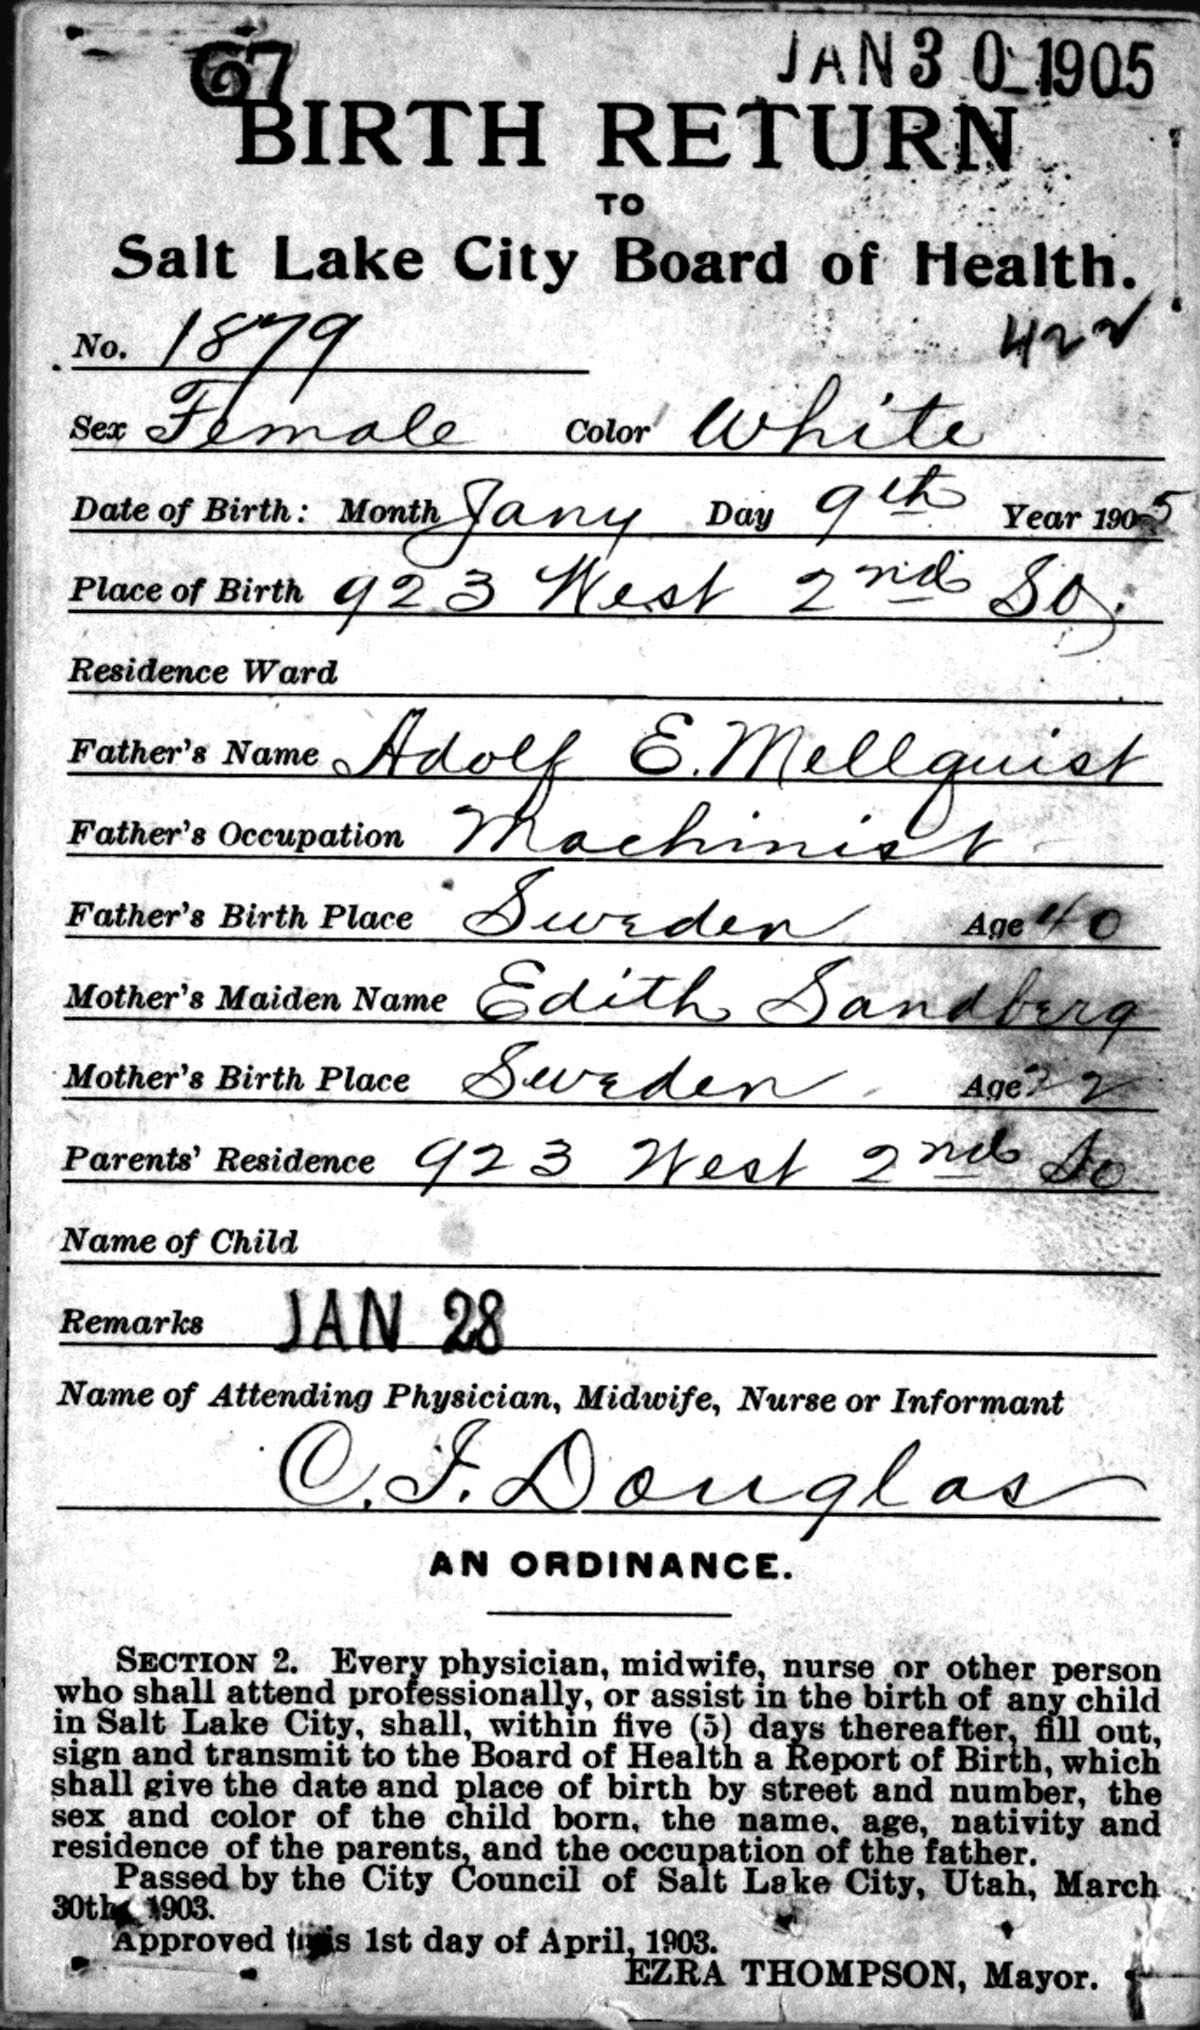 67
JAN 30 1905
BIRTH RETURN
TO
Salt Lake City Board of Health.
No. 1879
422
Sex Female Color White
Date of Birth: Month Jany Day 9th Year 1905
Place of Birth 923 West 2nd So.
Residence Ward
Father's Name Adolf E. Mellquist
Father's Occupation Machinist
Father's Birth Place Sweden Age 40
Mother's Maiden Name Edith Sandberg
Mother's Birth Place Sweden Age 22
Parents' Residence 923 West 2nd So
Name of Child
Remarks JAN 28
Name of Attending Physician, Midwife, Nurse or Informant
C. F. Douglas
AN ORDINANCE.
SECTION 2. Every physician, midwife, nurse or other person
who shall attend professionally, or assist in the birth of any child
in Salt Lake City, shall, within five (5) days thereafter, fill out,
sign and transmit to the Board of Health a Report of Birth, which
shall give the date and place of birth by street and number, the
sex and color of the child born, the name, age, nativity and
residence of the parents, and the occupation of the father.
Passed by the City Council of Salt Lake City, Utah, March
30th, 1903.
Approved this 1st day of April, 1903.
EZRA THOMPSON, Mayor.